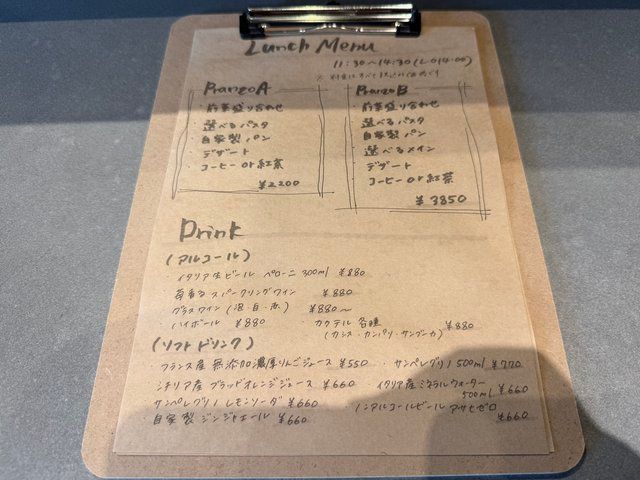 Lunch Menu
11:30〜14:30(L.O14:00)
Pranzo A
・前菜盛り合わせ
・選べるパスタ
・自家製パン
・デザート
・コーヒー or 紅茶
¥2200
Pranzo B
・前菜盛り合わせ
・選べるパスタ
・自家製パン
・選べるメイン
・デザート
・コーヒー or 紅茶
¥3850
Drink
(アルコール)
・イタリア生ビール ペローニ 300ml ¥880
苺香る スパークリングワイン ¥880
グラスワイン(泡・白・赤) ¥880〜
・ハイボール ¥880 ・カクテル 各種 ¥880
(カシス・カンパリ・サンブーカ)
(ソフトドリンク)
フランス産 無添加濃厚りんごジュース ¥550 ・サンペレグリノ 500ml ¥770
シチリア産 ブラッドオレンジジュース ¥660 イタリア産 ミネラルウォーター 500ml ¥660
サンペレグリノ レモンソーダ ¥660 ・ノンアルコールビール アサヒゼロ ¥660
・自家製 ジンジャエール ¥660